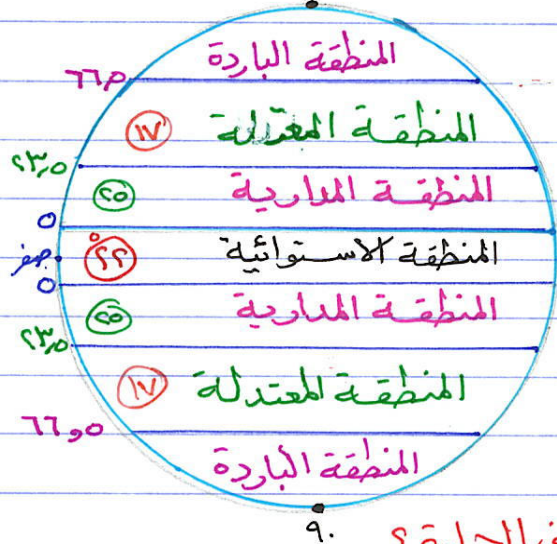 المنطقة الباردة
٦٦,٥
المنطقة المعتدلة ١٧
٢٣,٥
المنطقة المدارية ٢٥
٥
المنطقة الاستوائية ٢٢° صفر
٥
المنطقة المدارية ٢٥
٢٣,٥
المنطقة المعتدلة ١٧
٦٦,٥
المنطقة الباردة
٩٠